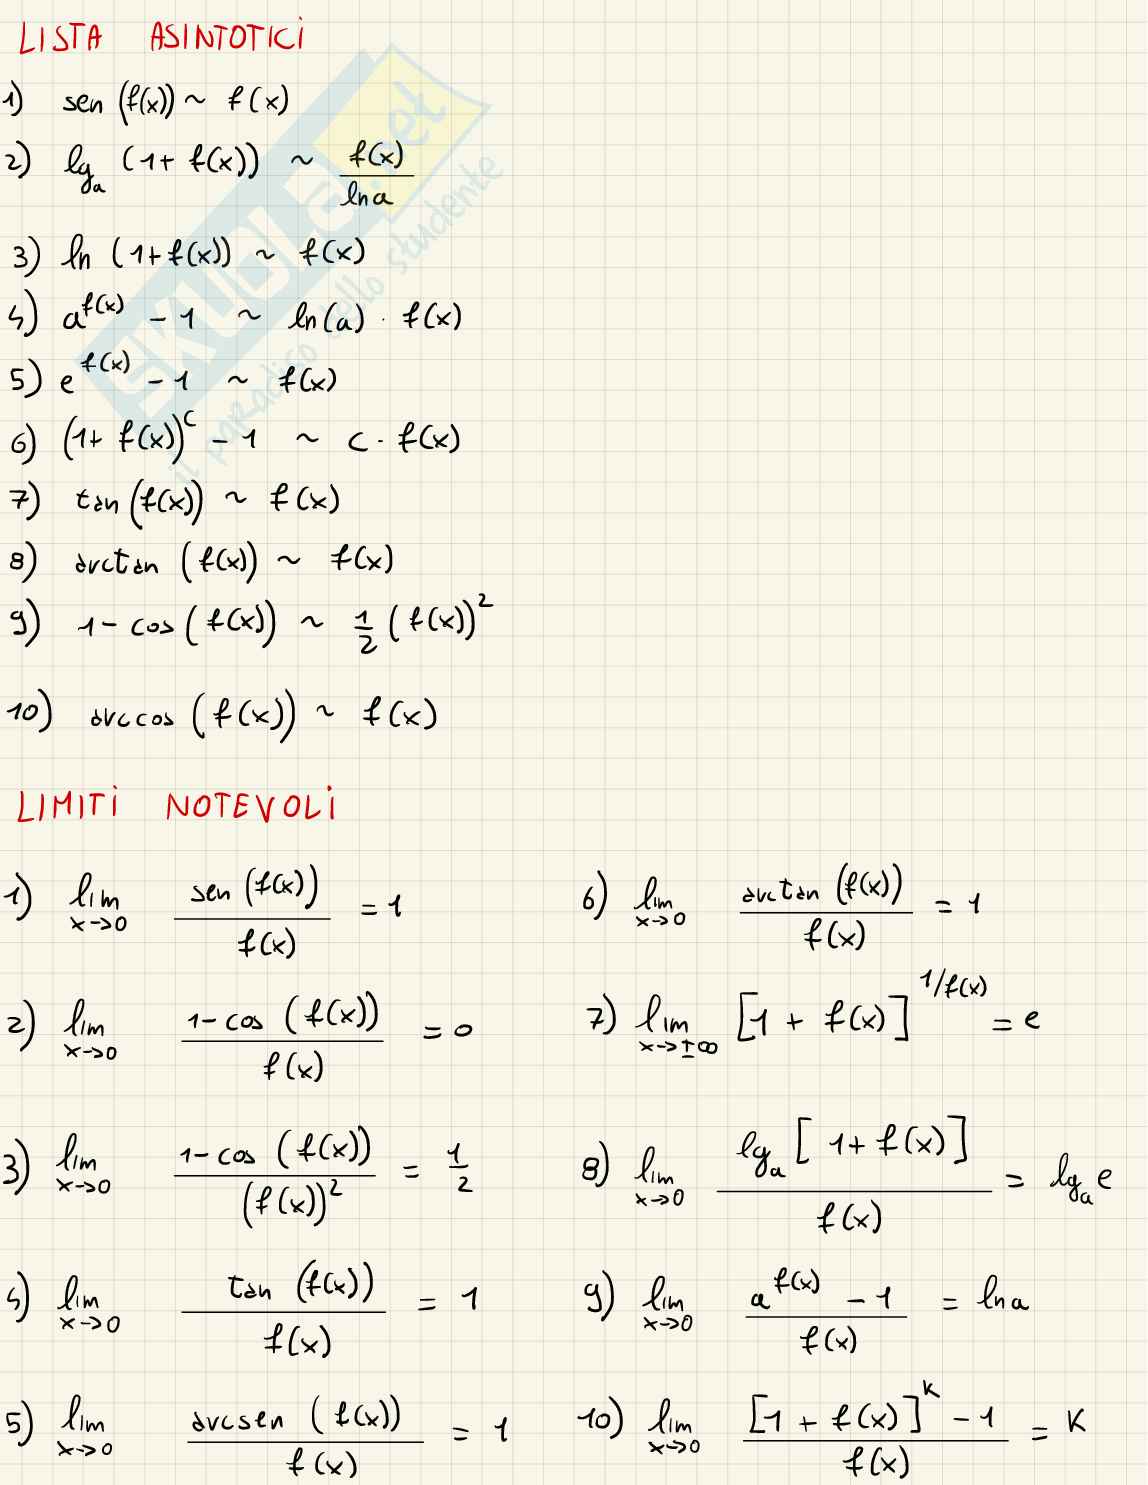 LISTA ASINTOTICI
1) sen (f(x)) ~ f(x)
2) lg_a (1 + f(x)) ~ f(x) / ln a
3) ln (1 + f(x)) ~ f(x)
4) a^f(x) - 1 ~ ln(a) · f(x)
5) e^f(x) - 1 ~ f(x)
6) (1 + f(x))^c - 1 ~ c · f(x)
7) tan (f(x)) ~ f(x)
8) arctan (f(x)) ~ f(x)
9) 1 - cos (f(x)) ~ 1/2 (f(x))^2
10) arccos (f(x)) ~ f(x)
SKUOLA.net
il paradiso dello studente
LIMITI NOTEVOLI
1) lim x→0 sen (f(x)) / f(x) = 1
2) lim x→0 1 - cos (f(x)) / f(x) = 0
3) lim x→0 1 - cos (f(x)) / (f(x))^2 = 1/2
4) lim x→0 tan (f(x)) / f(x) = 1
5) lim x→0 arcsen (f(x)) / f(x) = 1
6) lim x→0 arctan (f(x)) / f(x) = 1
7) lim x→±∞ [1 + f(x)]^1/f(x) = e
8) lim x→0 lg_a [1 + f(x)] / f(x) = lg_a e
9) lim x→0 a^f(x) - 1 / f(x) = ln a
10) lim x→0 [1 + f(x)]^k - 1 / f(x) = K